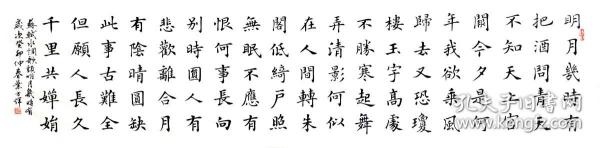 明月幾時有
把酒問青天
不知天上宮
闕今夕是何
年我欲乘風
歸去又恐瓊
樓玉宇高處
不勝寒起舞
弄清影何似
在人間轉朱
閣低綺戶照
無眠不應有
恨何事長向
別時圓人有
悲歡離合月
有陰晴圓缺
此事古難全
但願人長久
千里共嬋娟
蘇軾水調歌頭明月幾時有
歲次癸卯仲春葉
孔夫子旧书网